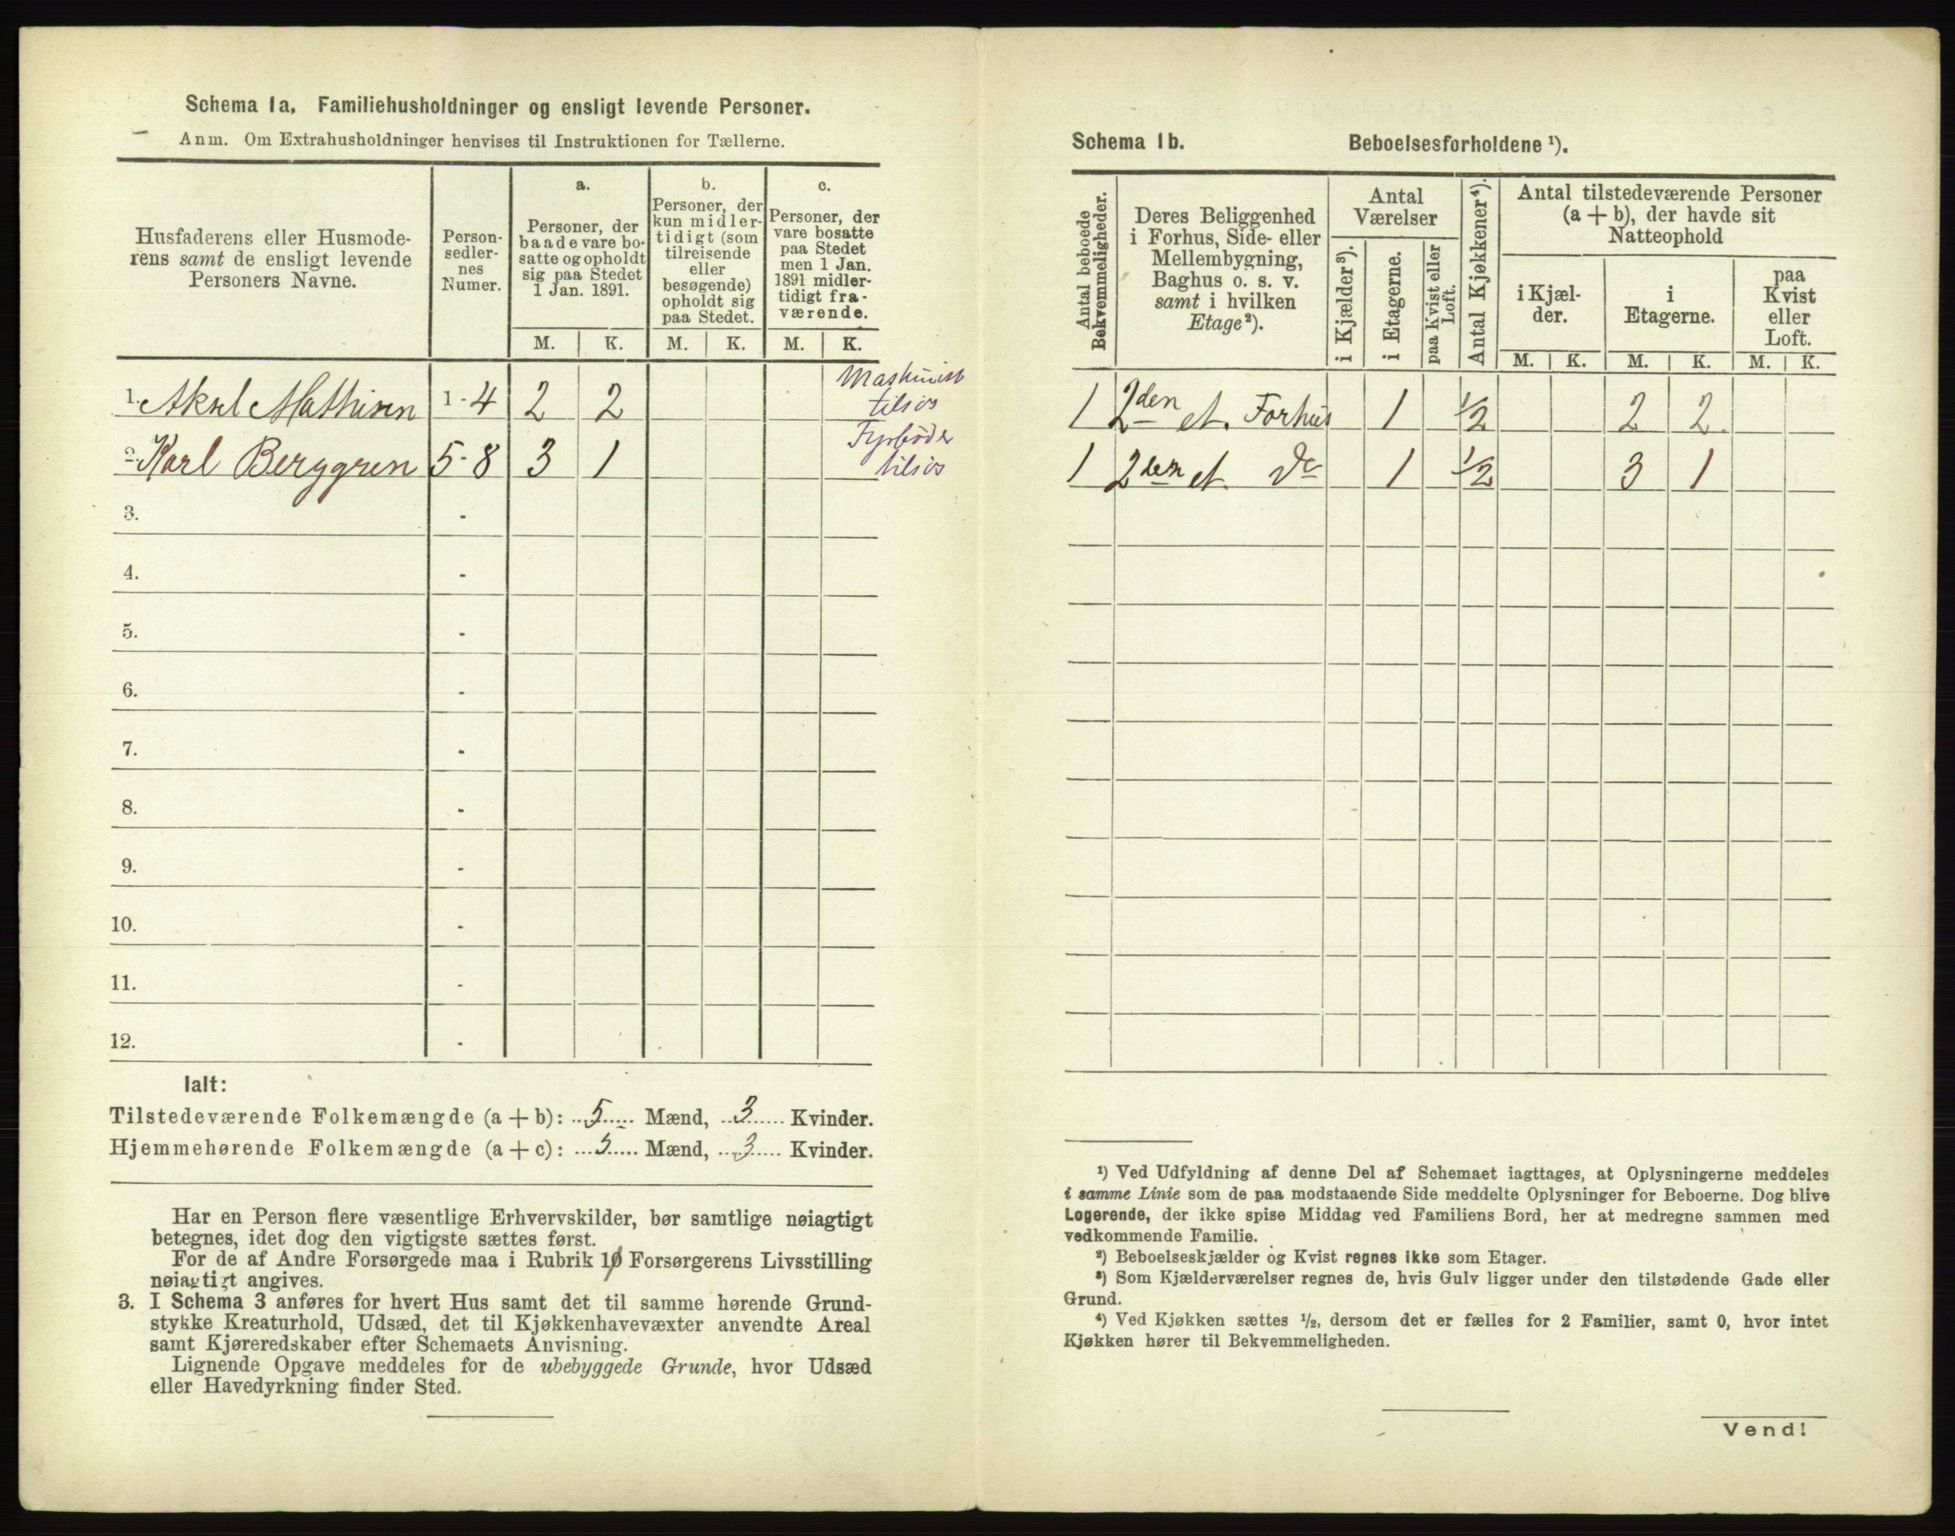 Schema 1a. Familiehusholdninger og ensligt levende Personer.
Anm. Om Extrahusholdninger henvises til Instruktionen for Tællerne.
Husfaderens eller Husmode-
rens samt de ensligt levende
Personers Navne.
Person-
sedler-
nes
Numer.
a.
Personer, der
baade vare bo-
satte og opholdt
sig paa Stedet
1 Jan. 1891.
b.
Personer, der
kun midler-
tidigt (som
tilreisende
eller
besøgende)
opholdt sig
paa Stedet.
c.
Personer, der
vare bosatte
paa Stedet
men 1 Jan.
1891 midler-
tidigt fra-
værende.
M. K. M. K. M. K.
1. Aksel Mathisen 1-4 2 2 Maskinist
tilsjøs
2. Karl Berggren 5-8 3 1 Fyrbøder
tilsjøs
3. -
4. -
5. -
6. -
7. -
8. -
9. -
10. -
11. -
12. -
Ialt:
Tilstedeværende Folkemængde (a + b): 5 Mænd, 3 Kvinder.
Hjemmehørende Folkemængde (a + c): 5 Mænd, 3 Kvinder.
Har en Person flere væsentlige Erhvervskilder, bør samtlige nøiagtigt
betegnes, idet dog den vigtigste sættes først.
For de af Andre Forsørgede maa i Rubrik 10 Forsørgerens Livsstilling
nøiagtigt angives.
3. I Schema 3 anføres for hvert Hus samt det til samme hørende Grund-
stykke Kreaturhold, Udsæd, det til Kjøkkenhavevæxter anvendte Areal
samt Kjøreredskaber efter Schemaets Anvisning.
Lignende Opgave meddeles for de ubebyggede Grunde, hvor Udsæd
eller Havedyrkning finder Sted.
Schema 1b. Beboelsesforholdene ¹).
Antal beboede
Bekvemmeligheder.
Deres Beliggenhed
i Forhus, Side- eller
Mellembygning,
Baghus o. s. v.
samt i hvilken
Etage²).
Antal
Værelser
i Kjælder³).
i Etagerne.
paa Kvist eller
Loft.
Antal Kjøkkener⁴).
Antal tilstedeværende Personer
(a + b), der havde sit
Natteophold
i Kjæl-
der.
i
Etagerne.
paa
Kvist
eller
Loft.
M. K. M. K. M. K.
1 2den et. Forhus 1 ½ 2 2
1 2den et. Do 1 ½ 3 1
¹) Ved Udfyldning af denne Del af Schemaet iagttages, at Oplysningerne meddeles
i samme Linie som de paa modstaaende Side meddelte Oplysninger for Beboerne. Dog blive
Logerende, der ikke spise Middag ved Familiens Bord, her at medregne sammen med
vedkommende Familie.
²) Beboelseskjælder og Kvist regnes ikke som Etager.
³) Som Kjælderværelser regnes de, hvis Gulv ligger under den tilstødende Gade eller
Grund.
⁴) Ved Kjøkken sættes ½, dersom det er fælles for 2 Familier, samt 0, hvor intet
Kjøkken hører til Bekvemmeligheden.
Vend!